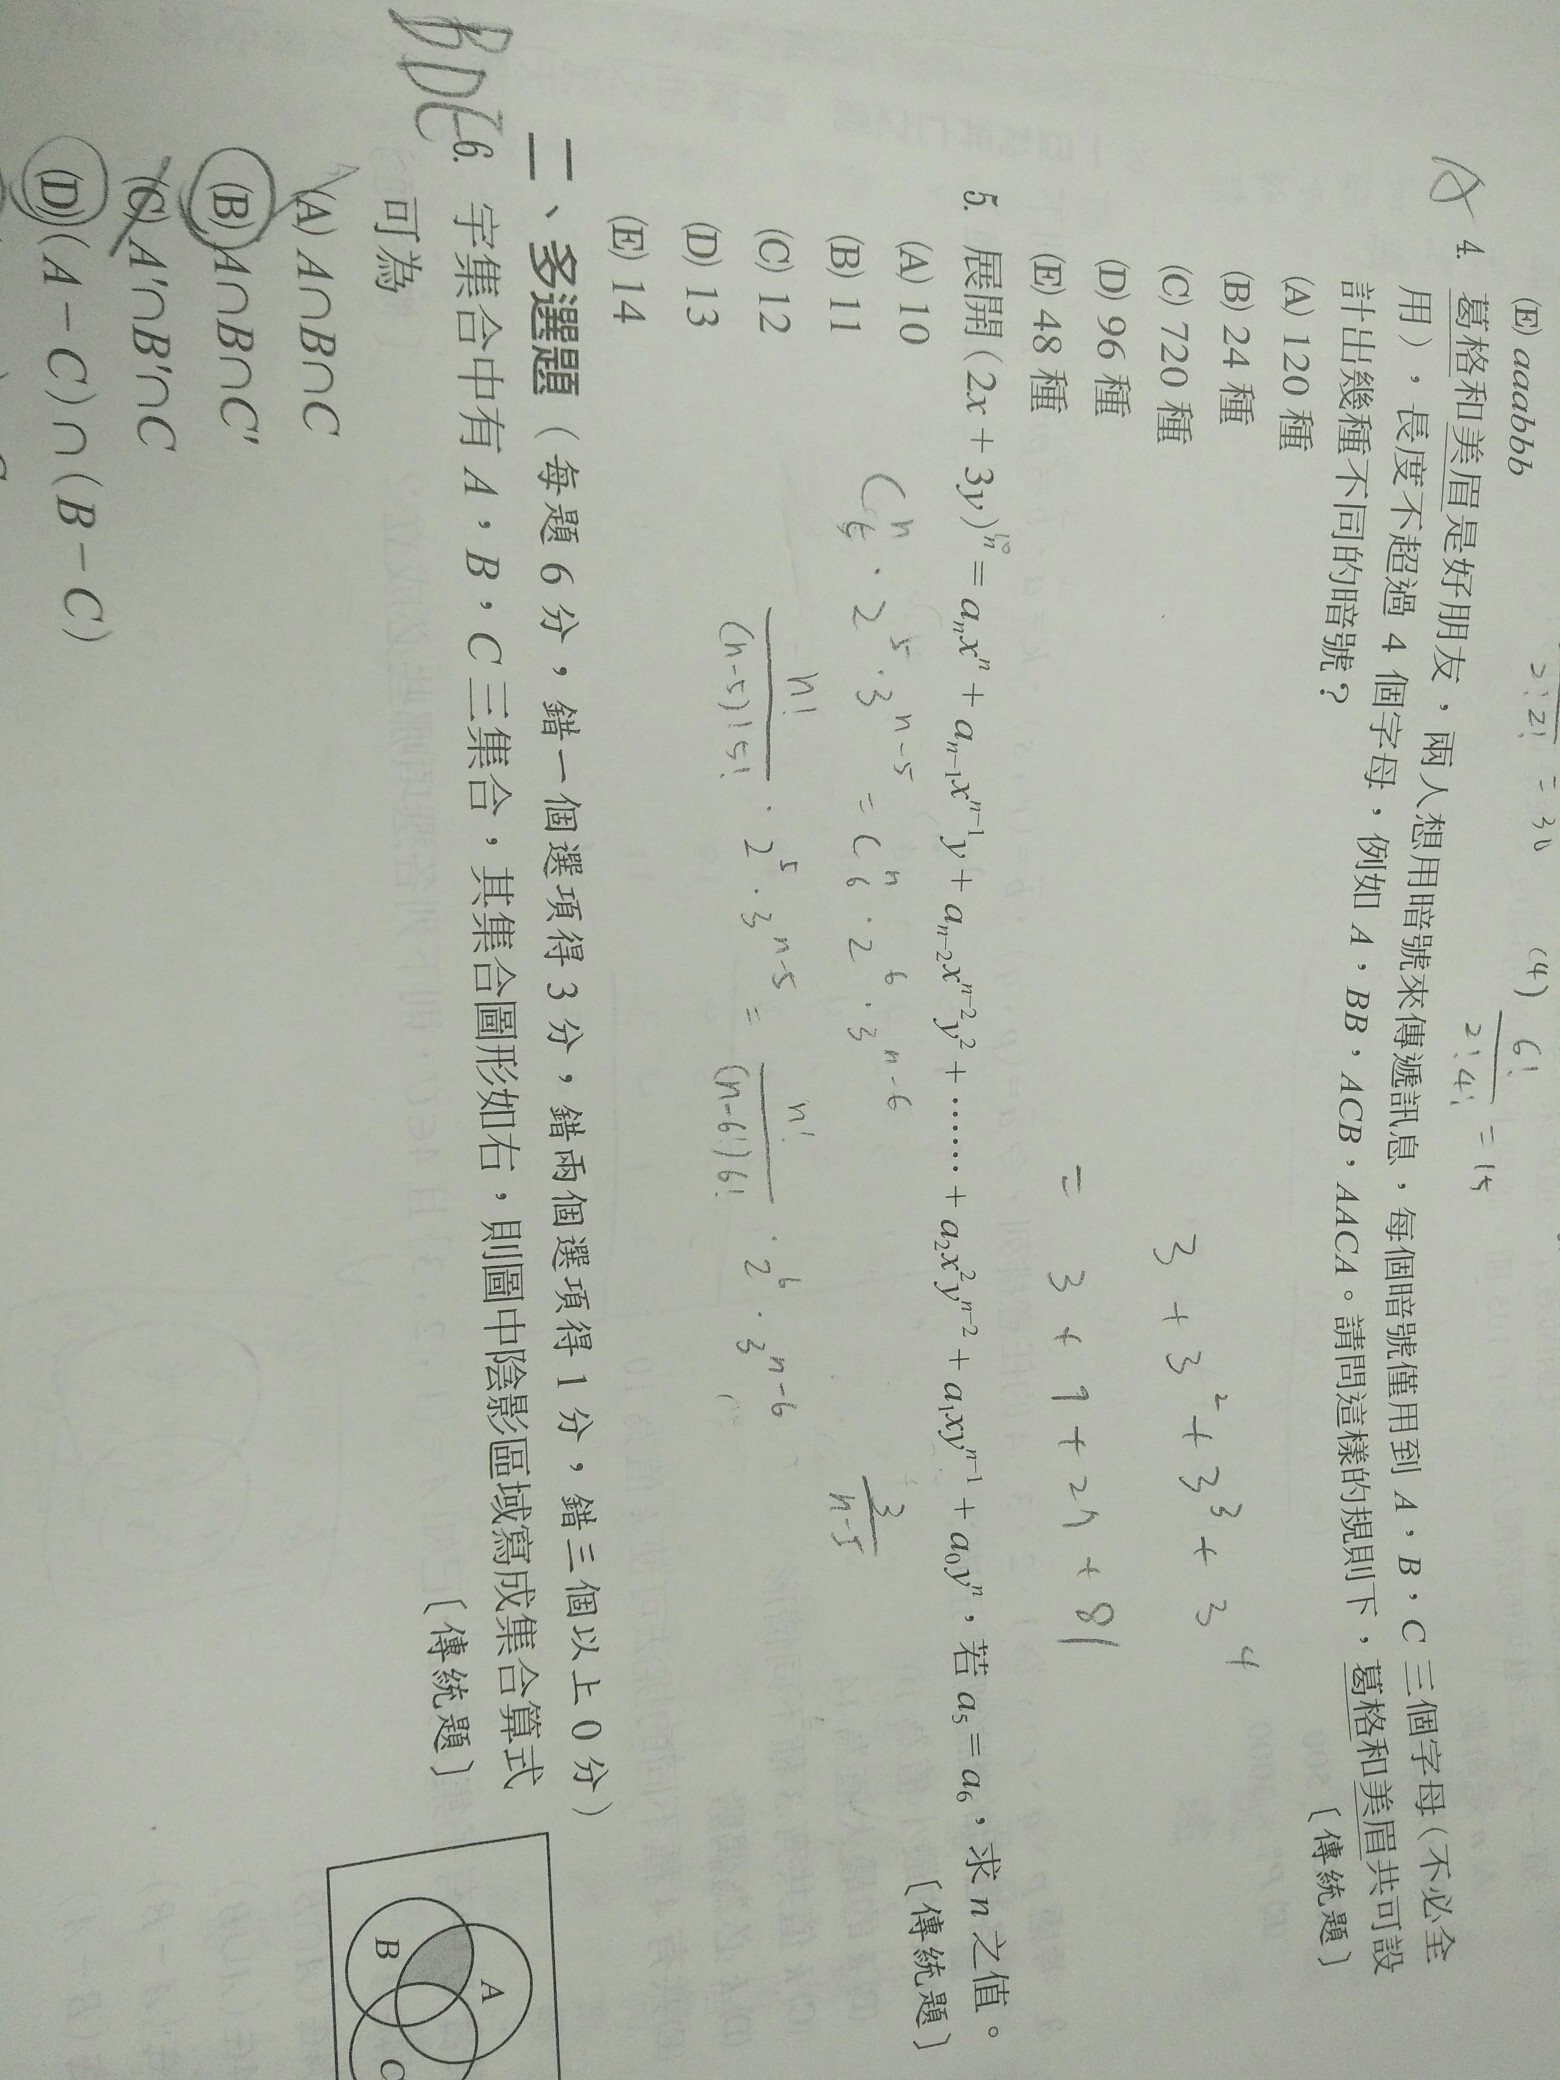 (E) aaabbb
2!2! = 30
(4) 6!
2!4! = 15
A 4. 葛格和美眉是好朋友，兩人想用暗號來傳遞訊息，每個暗號僅用到 A，B，C 三個字母（不必全
用），長度不超過 4 個字母，例如 A，BB，ACB，AACA。請問這樣的規則下，葛格和美眉共可設
計出幾種不同的暗號？〔傳統題〕
(A) 120 種
(B) 24 種
(C) 720 種
(D) 96 種
(E) 48 種
3 + 3² + 3³ + 3⁴
= 3 + 9 + 27 + 81
5. 展開 (2x + 3y)ⁿ = aₙxⁿ + aₙ₋₁xⁿ⁻¹y + aₙ₋₂xⁿ⁻²y² + …… + a₂x²yⁿ⁻² + a₁xyⁿ⁻¹ + a₀yⁿ，若 a₅ = a₆，求 n 之值。
〔傳統題〕
(A) 10
(B) 11
(C) 12
(D) 13
(E) 14
Cⁿ₅ · 2⁵ · 3ⁿ⁻⁵ = Cⁿ₆ · 2⁶ · 3ⁿ⁻⁶
n!/(n-5)!5! · 2⁵ · 3ⁿ⁻⁵ = n!/(n-6!)6! · 2⁶ · 3ⁿ⁻⁶
3/n-5
二、多選題（每題 6 分，錯一個選項得 3 分，錯兩個選項得 1 分，錯三個以上 0 分）
BDE 6. 宇集合中有 A，B，C 三集合，其集合圖形如右，則圖中陰影區域寫成集合算式
可為〔傳統題〕
(A) A∩B∩C
(B) A∩B∩C'
(C) A'∩B'∩C
(D) (A－C)∩(B－C)
A
B
C